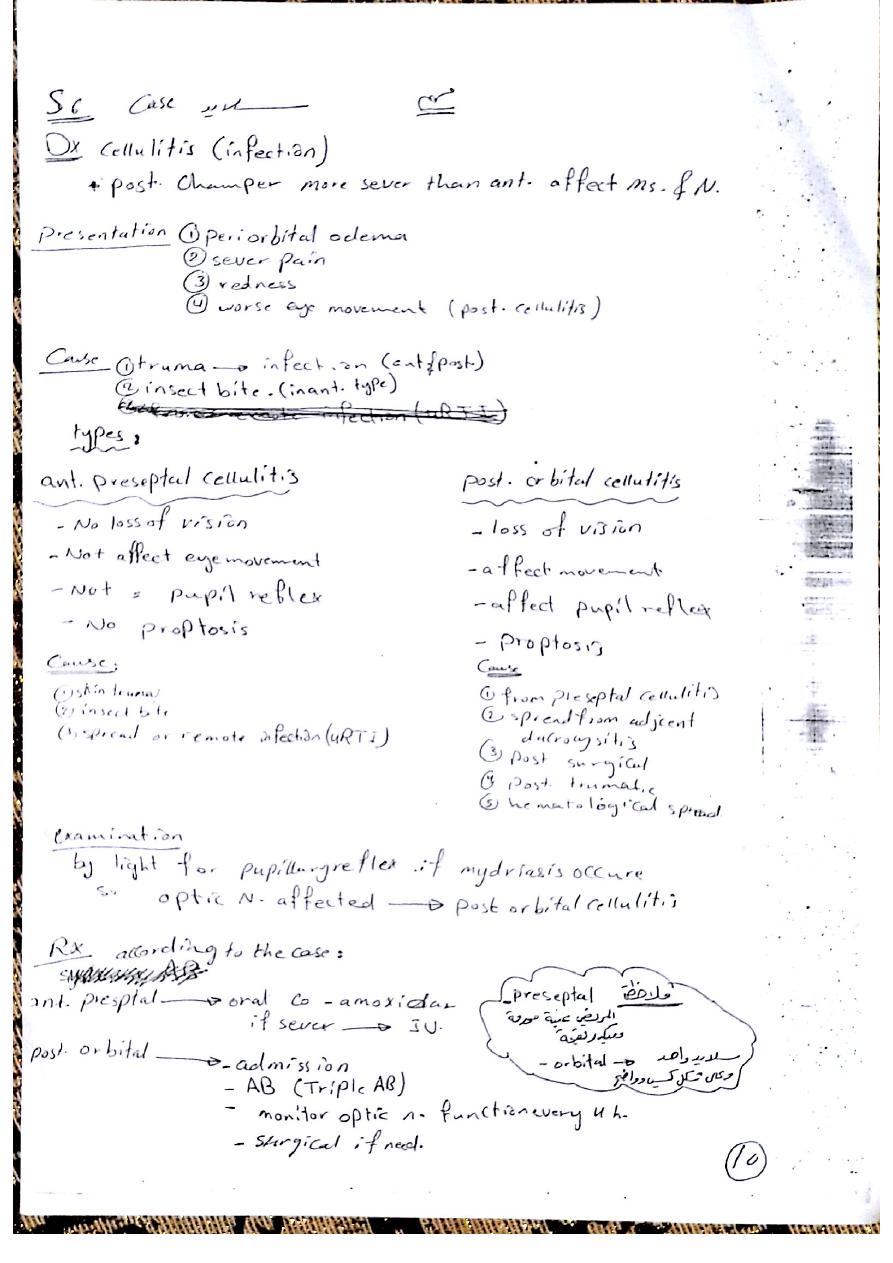 S6 Case سلايد مهم
Dx Cellulitis (infection)
* post. Champer more sever than ant. affect Ms. & N.
presentation ① periorbital odema
② sever pain
③ redness
④ worse eye movement (post. cellulitis)
Cause ① truma → infection (ant & post)
② insect bite. (in ant. type)
types:
ant. preseptal cellulitis
- No loss of vision
- Not affect eye movement
- Not = pupil reflex
- No proptosis
Cause:
(1) skin truma
(2) insect bite
(3) spread or remote infection (uRTI)
post. orbital cellutitis
- loss of vision
- affect movement
- affect pupil reflex
- proptosis
Cause
① from preseptal cellulitis
② spread from adjcent
dacrocysitis
③ post surgical
④ post trumatic
⑤ hematological spread
examination
by light for pupillary reflex if mydriasis occure
so optic N. affected → post orbital cellulitis
Rx according to the case:
ant. presptal → oral Co-amoxiclav
if sever → IV.
post. orbital → - admission
- AB (Triple AB)
- monitor optic n. function every 4 h.
- surgical if need.
ملاحظة
- preseptal
المريض عينة مورمة
- orbital → سلايد واحد
وعلى شكل كيس وواضح
10